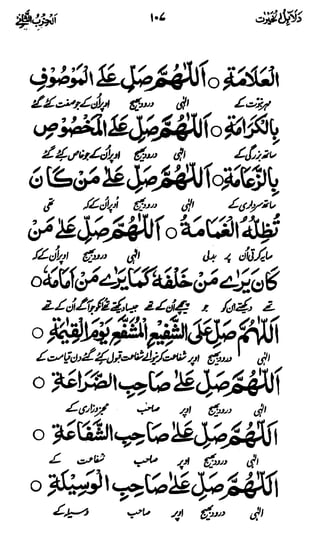 دلائل الخیرات ۱۰۷ الحزب الثانی
الْعَلَامَةِ ○ اَللّٰهُمَّ صَلِّ عَلَى الْمَوْصُوْفِ
مہر نبوت کے الٰہی درود بھیج اوپر اُن کے جو صفت کئے گئے
بِالْكَرَامَةِ ○ اَللّٰهُمَّ صَلِّ عَلَى الْمَخْصُوْصِ
ساتھ بزرگی کے الٰہی درود بھیج اوپر اُن کے جو خاص کئے گئے
بِالزَّعَامَةِ ○ اَللّٰهُمَّ صَلِّ عَلٰى مَنْ كَانَ
ساتھ سرداری کے الٰہی درود بھیج اُوپر اُن کے کہ تھی
تُظِلُّهُ الْغَمَامَةُ ○ اَللّٰهُمَّ صَلِّ عَلٰى مَنْ
سایہ کرتی اُن پر بدلی الٰہی درود بھیج اوپر اُن کے کہ
كَانَ يَرٰى مَنْ خَلْفَهٗ كَمَا يَرٰى مَنْ اَمَامَهٗ ○
تھے دیکھتے ان کو جو پیچھے اُن کے تھے جیسا دیکھتے تھے اُنکو جو آگے اُن کے تھے
اَللّٰهُمَّ صَلِّ عَلَى الشَّفِيْعِ الْمُشَفَّعِ يَوْمَ الْقِيٰمَةِ ○
الٰہی درود بھیج اوپر شفاعت کرنیوالے شفاعت قبول کئے گئے دن قیامت کے
اَللّٰهُمَّ صَلِّ عَلٰى صَاحِبِ الضَّرَاعَةِ ○
الٰہی درود بھیج اوپر صاحب عجز و زاری کے
اَللّٰهُمَّ صَلِّ عَلٰى صَاحِبِ الشَّفَاعَةِ ○
الٰہی درود بھیج اوپر صاحب شفاعت کے
اَللّٰهُمَّ صَلِّ عَلٰى صَاحِبِ الْوَسِيْلَةِ ○
الٰہی درود بھیج اوپر صاحب وسیلہ کے